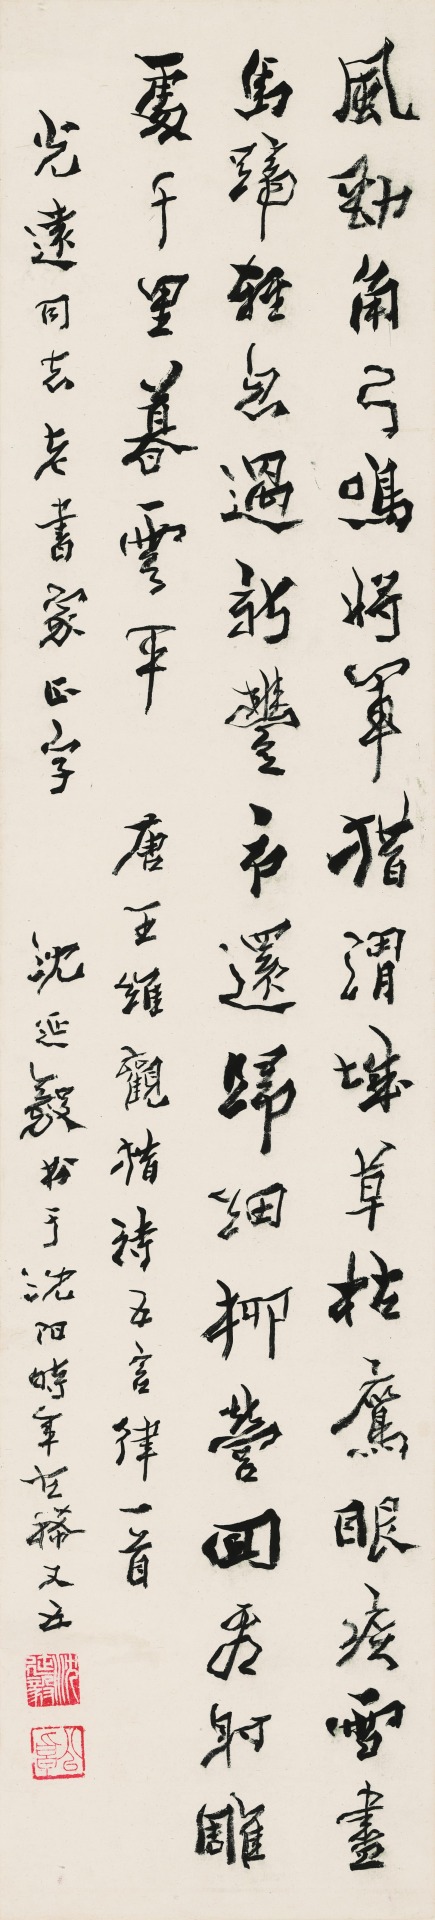 風勁角弓鳴將軍猎渭城草枯鷹眼疾雪盡
馬蹄輕忽過新豐市還歸細柳營回看射雕
處千里暮雲平 唐王維觀猎詩五言律一首
光遠同志老書家正字 沈延毅於于沈阳時年七十又五
沈延毅
公卓